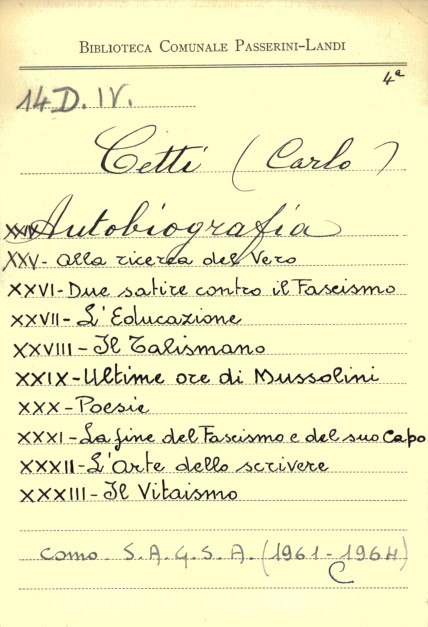 BIBLIOTECA COMUNALE PASSERINI-LANDI
4ª
14 D. IV.
Cetti (Carlo)
XXIV Autobiografia
XXV - Alla ricerca del Vero
XXVI - Due satire contro il Fascismo
XXVII - L'Educazione
XXVIII - Il Talismano
XXIX - Ultime ore di Mussolini
XXX - Poesie
XXXI - La fine del Fascismo e del suo Capo
XXXII - L'Arte dello scrivere
XXXIII - Il Vitaismo
Como. S.A.G.S.A. (1961-1964)
C